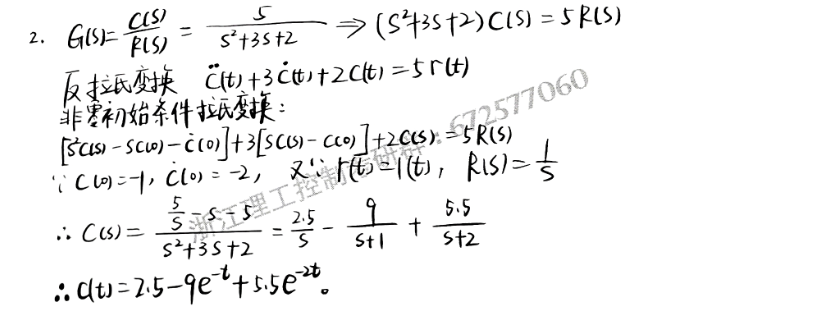 2. G(s)=C(s)/R(s) = 5/(s²+3s+2) ⇒ (s²+3s+2)C(s)=5R(s)
反拉氏变换 c̈(t)+3ċ(t)+2c(t)=5r(t)
非零初始条件拉氏变换:
[s²C(s)-sc(0)-ċ(0)]+3[sC(s)-c(0)]+2C(s)=5R(s)
∵ c(0)=-1, ċ(0)=-2, 又∵ r(t)=1(t), R(s)=1/s
∴ C(s)= (5/s-s-5)/(s²+3s+2) = 2.5/s - 9/(s+1) + 5.5/(s+2)
∴ c(t)=2.5-9e^{-t}+5.5e^{-2t}。
浙江理工控制考研群:672577060